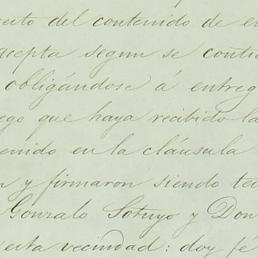 cuto del contenido de e
acepta segun se conti
obligándose á entreg
ego que haya recibido la
enido en la cláusula
n y firmaron siendo te
Gonzalo Sotuyo y Don
esta vecindad: doy fé